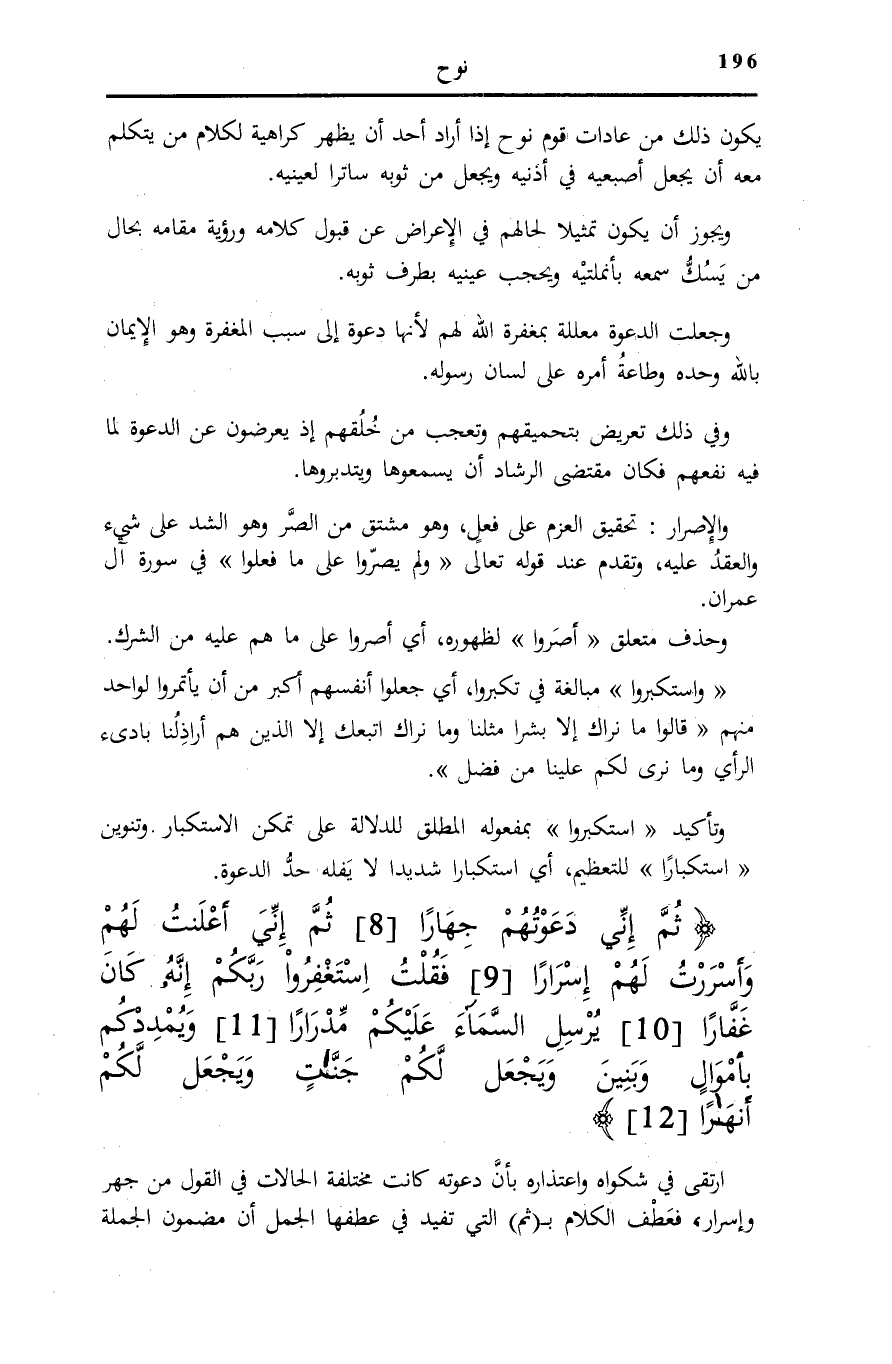 196
نوح
يكون ذلك من عادات قوم نوح إذا أراد أحد أن يظهر كراهية لكلام من يتكلم
معه أن يجعل أصبعيه في أذنيه ويجعل من ثوبه ساترا لعينيه.
ويجوز أن يكون تمثيلا لحالهم في الإعراض عن قبول كلامه ورؤية مقامه بحال
من يَسُكُّ سمعه بأنملتيْه ويحجب عينيه بطرف ثوبه.
وجعلت الدعوة معللة بمغفرة الله لهم لأنها دعوة إلى سبب المغفرة وهو الإيمان
بالله وحده وطاعةُ أمره على لسان رسوله.
وفي ذلك تعريض بتحميقهم وتعجب من خُلُقهم إذ يعرضون عن الدعوة لما
فيه نفعهم فكان مقتضى الرشاد أن يسمعوها ويتدبروها.
والإصرار : تحقيق العزم على فعلٍ، وهو مشتق من الصَّر وهو الشد على شيء
والعقدُ عليه، وتقدم عند قوله تعالى « ولم يصرّوا على ما فعلوا » في سورة آل
عمران.
وحذف متعلق « أصَروا » لظهوره، أي أصروا على ما هم عليه من الشرك.
« واستكبروا » مبالغة في تكبروا، أي جعلوا أنفسهم أكبر من أن يأتمروا لواحد
منهم « قالوا ما نراك إلا بشرا مثلنا وما نراك اتبعك إلا الذين هم أراذِلُنا بادىء
الرأي وما نرى لكم علينا من فضل ».
وتأكيد « استكبروا » بمفعوله المطلق للدلالة على تمكن الاستكبار. وتنوين
« استكبارًا » للتعظيم، أي استكبارا شديدا لا يَفله حدُّ الدعوة.
﴿ ثُمَّ إِنِّي دَعَوْتُهُمْ جِهَارًا [8] ثُمَّ إِنِّيَ أَعْلَنتُ لَهُمْ
وَأَسْرَرْتُ لَهُمْ إِسْرَارًا [9] فَقُلْتُ اِسْتَغْفِرُواْ رَبَّكُمْ إِنَّهُۥ كَانَ
غَفَّارًا [10] يُرْسِلِ السَّمَآءَ عَلَيْكُم مِّدْرَارًا [11] وَيُمْدِدْكُم
بِأَمْوَٰلٍ وَبَنِينَ وَيَجْعَل لَّكُمْ جَنَّٰتٍ وَيَجْعَل لَّكُمْ
أَنهَٰرًا [12] ﴾
ارتقى في شكواه واعتذاره بأنَّ دعوته كانت مختلفة الحالات في القول من جهر
وإسرار، فعَطْف الكلام بـ(ثم) التي تفيد في عطفها الجمل أن مضمون الجملة